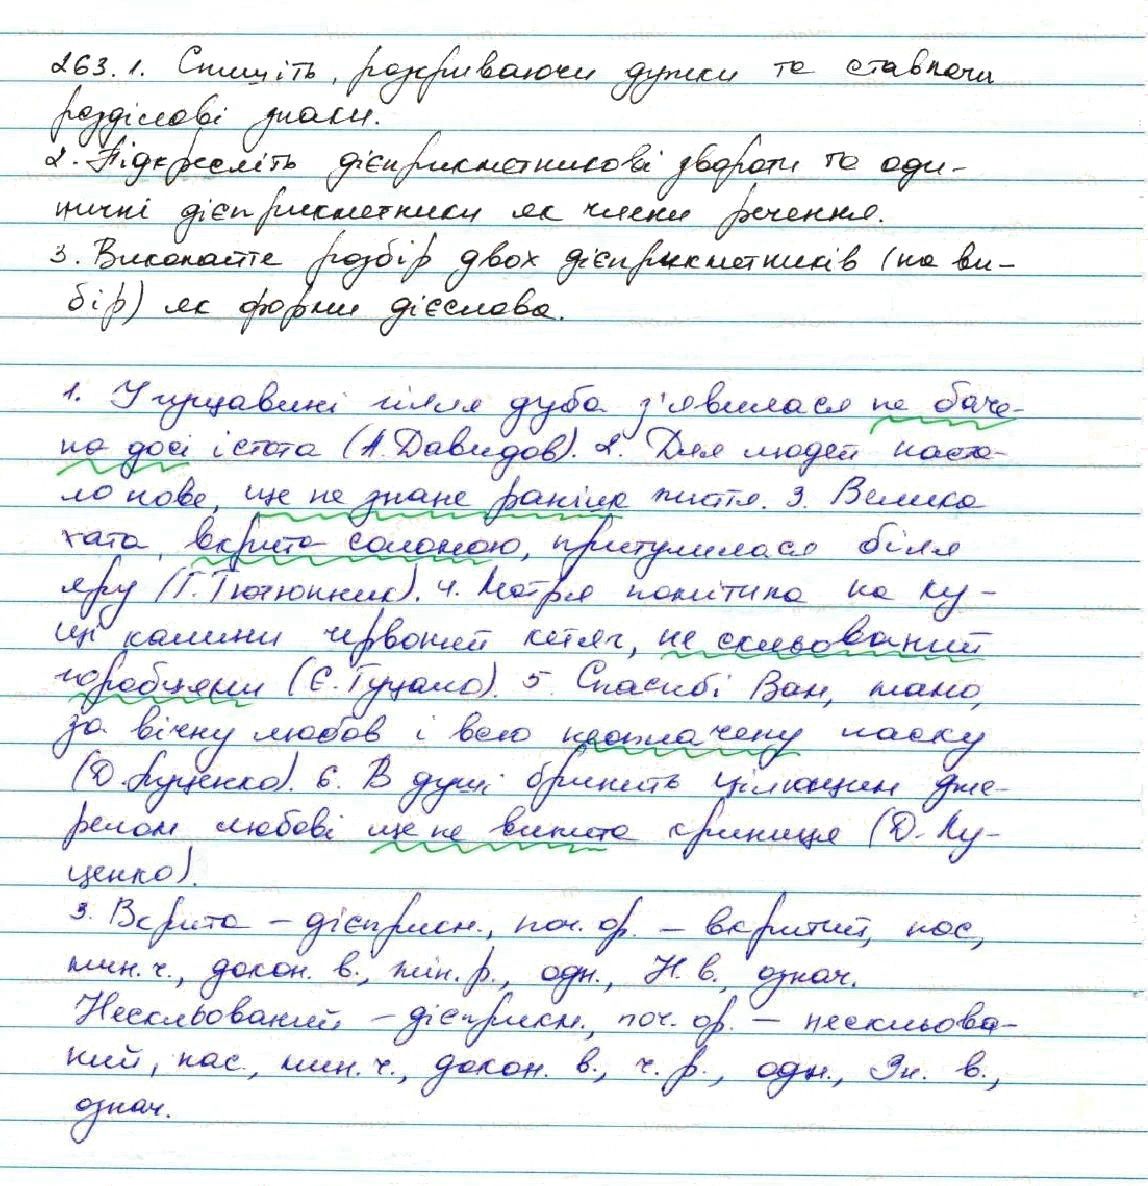 263.1. Спишіть, розкриваючи дужки та ставлячи
розділові знаки.
2. Підкресліть дієприкметникові звороти та оди-
ничні дієприкметники як члени речення.
3. Виконайте розбір двох дієприкметників (на ви-
бір) як форми дієслова.
1. У гущавині гілля дуба з'явилася не баче-
на досі істота (А. Давидов). 2. Для людей наста-
ло нове, ще не знане раніше життя. 3. Велика
хата, вкрита соломою, притулилася біля
яру (Г. Тютюнник). 4. Мотря помітила на ку-
щі калини червоний кетяг, не скльований
горобцями (Є. Гуцало). 5. Спасибі Вам, мамо,
за вічну любов і всю неоплачену ласку
(Д. Луценко). 6. В душі бринить цілющим дже-
релом любові ще не випита криниця (Д. Лу-
ценко).
3. Вкрита – дієприкм., поч. ф. – вкритий, пас.,
мин. ч., докон. в., жін. р., одн., Н. в., означ.
Нескльований – дієприкм., поч. ф. – нескльова-
ний, пас., мин. ч., докон. в., ч. р., одн., Зн. в.,
означ.